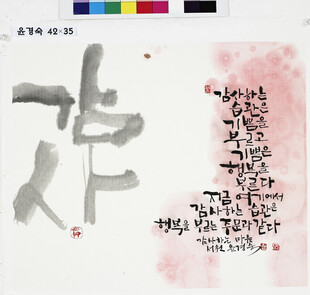 윤경숙 42×35
감사
감사하는
습관은
기쁨을
부르고
기쁨은
행복을
부른다
지금 여기에서
감사하는 습관은
행복을 부르는 주문과 같다
감사하는 마음
윤경숙